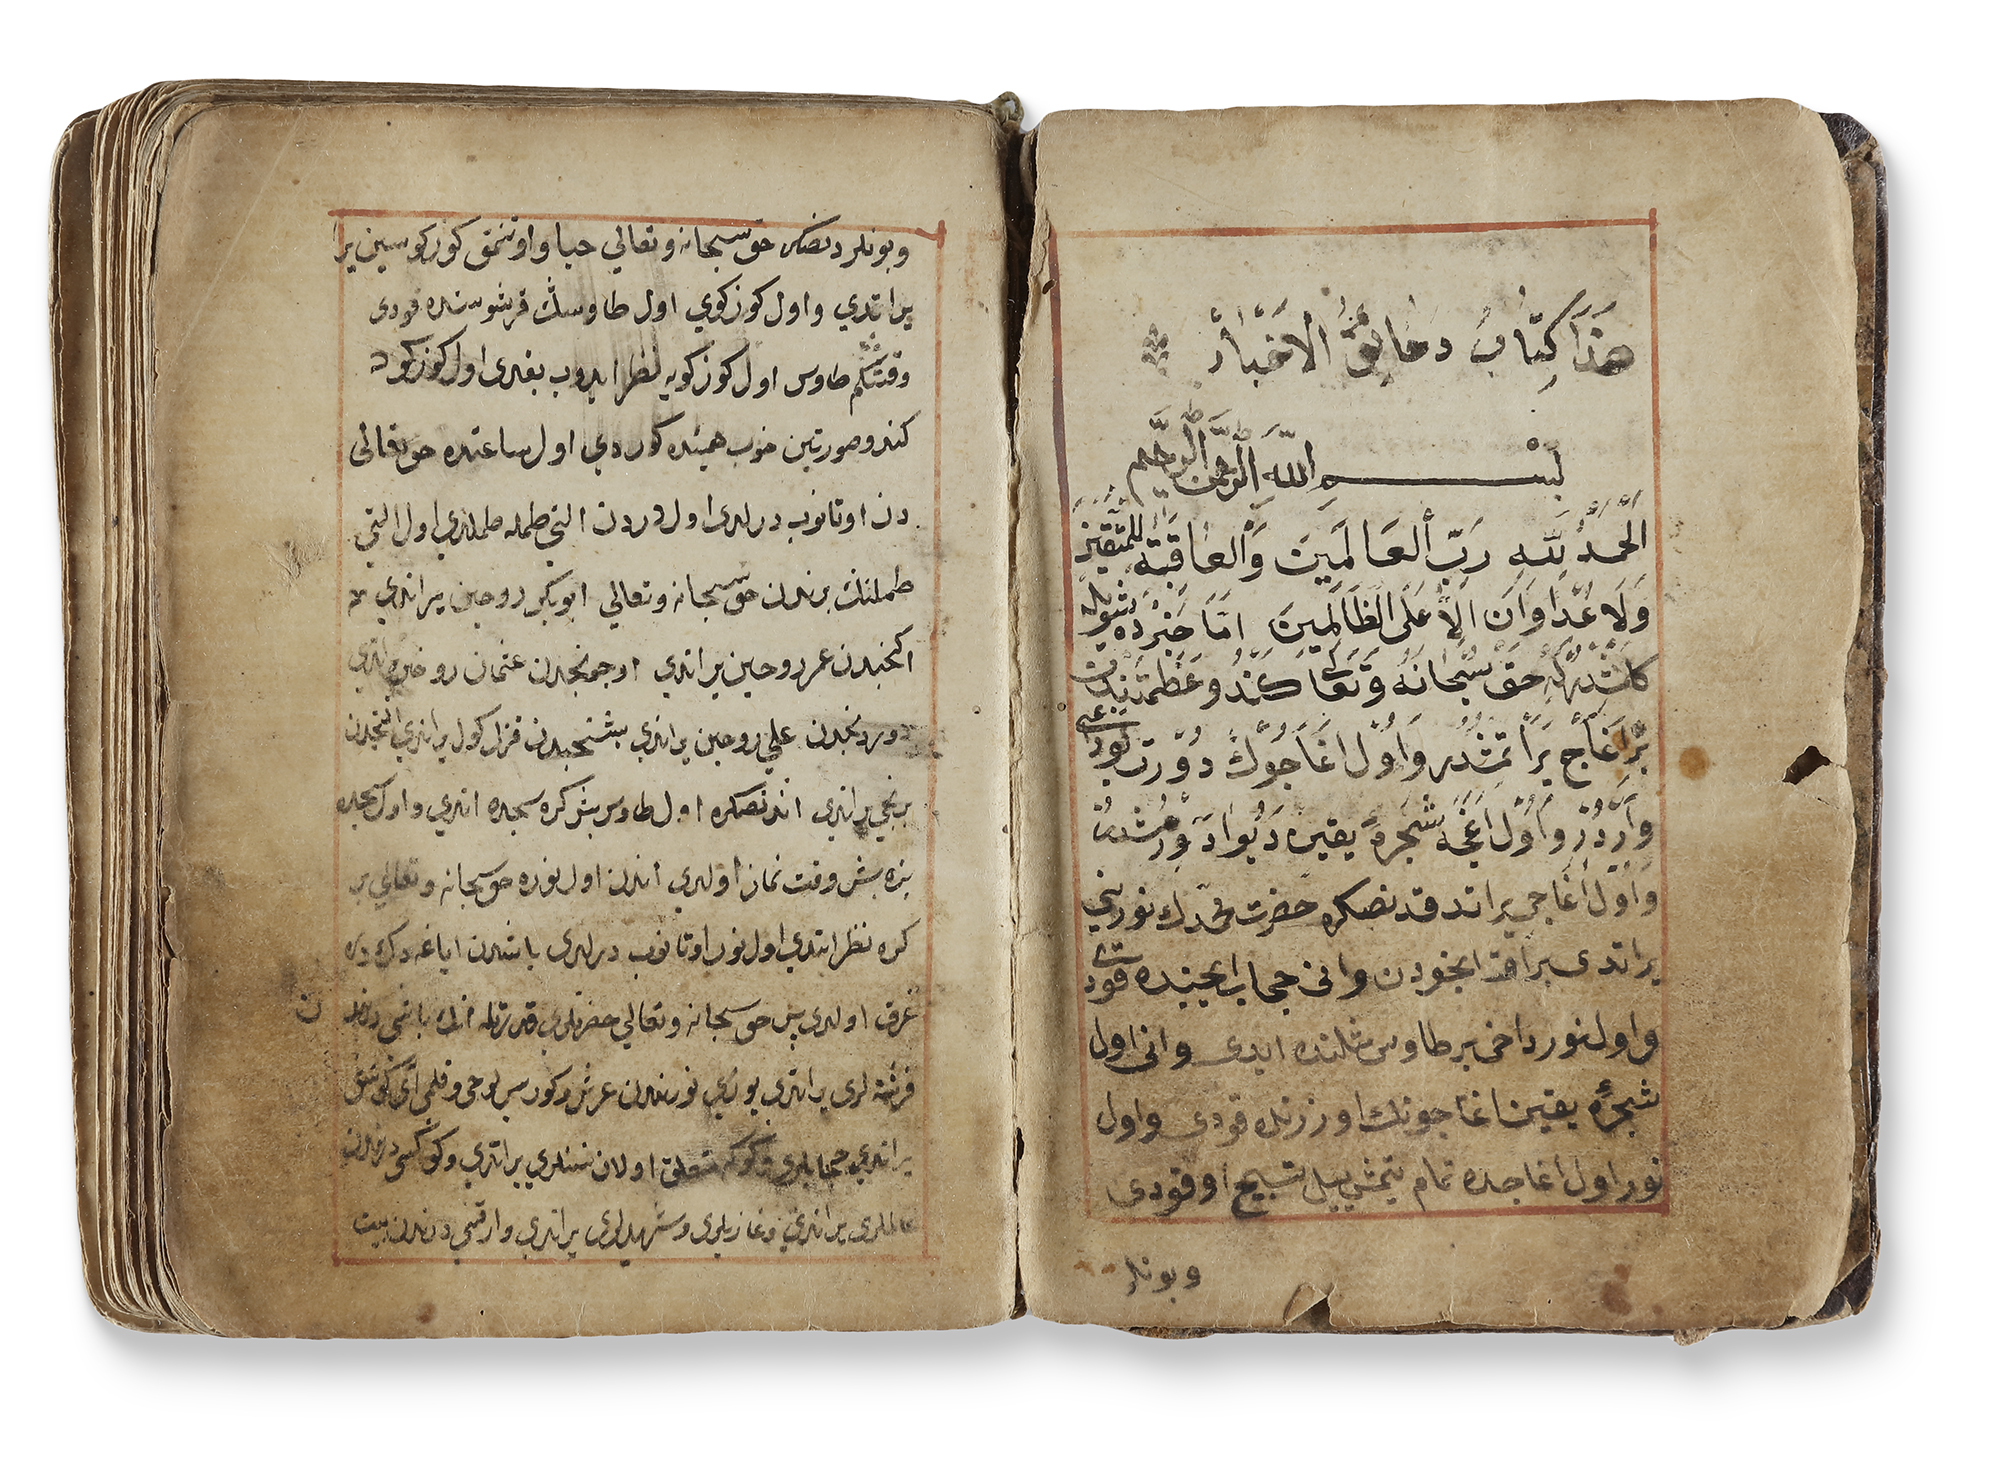 هَذَا كِتَابُ دَقَائِقُ الْاَخْبَارْ
بِسْمِ اللّٰهِ الرَّحْمٰنِ الرَّحِيمِ
اَلْحَمْدُ لِلّٰهِ رَبِّ الْعَالَمِينَ وَالْعَاقِبَةُ لِلْمُتَّقِينَ
وَلَا عُدْوَانَ اِلَّا عَلَى الظَّالِمِينَ اَمَّا خَبَرْدَه شُويْلَه
كَلْمِشْدِرْكِه حَقْ سُبْحَانَهُ وَتَعَالَى كَنْدُو عَظَمَتِنْدَنْ
بِرْ اَغَاجْ يَرَاتْمِشْدُرْ وَاُولْ اَغَاجُوكْ دُورْتْ بُودَاغِى
وَارْدُرْ وَاُولْ اَغَجَه شَجَرَةُ يَقِين دَيُو اَدْ وِرْمِشْدُرْ
وَاُولْ اَغَاجى يراتدقدنصكره حضرت محمدك نورينى
يراتدى براق انجودن وانى حجاب ايچنده قودى
و اول نور داخى بر طاوس شكلنده ايدى و انى اول
شجرهٔ يقين اغاجونك اوزرنده قودى و اول
نور اول اغاجده تمام يتمش ييل تسبيح اوقودى
وبونلر
وبونلردنصكره حق سبحانه وتعالي حيا و اوتنمق كوزكوسين يرا
يراتدي و اول كوزكوي اول طاوسك قرشوسنده قودى
وقتكم طاوس اول كوزكويه نظر ايدوب بقدى اول كوزكوده
كندو صورتين خوب هيئده كوردي اول ساعتده حق تعالى
دن اوتانوب درلدى اول دردن التي طمله طملدي اول التي
طملنك برندن حق سبحانه وتعالي ابوبكر روحين يراتدي
اكنجيدن عمر روحين يراتدي اوجنجيدن عثمان روحين يراتدي
دوردنجيدن علي روحين يراتدي بشنجيدن قزل كول يراتدي التنجيدن
برنجي يراتدي اندنصكره اول طاوس بش كره سجده اتدي و اول سجده
بزه بش وقت نماز اولدي اندن اول نوره حق سبحانه وتعالي بر
كره نظر ايتدي اول نور اوتانوب درلدى باشدن اياغه دك دره
غرق اولدي پس حق سبحانه وتعالي حضرتلري قدرتله انك باشى درندن
فرشته لرى يراتدي يوزي نورندن عرش وكورسي لوحى وقلمى آى كونش
يراتدي حجابلري وكوكه متعلق اولان نسنلري يراتدي وكوكسي درندن
عالملري يراتدي وغازيلرى وشهدلرى يراتدي وارقسى درندن بيت